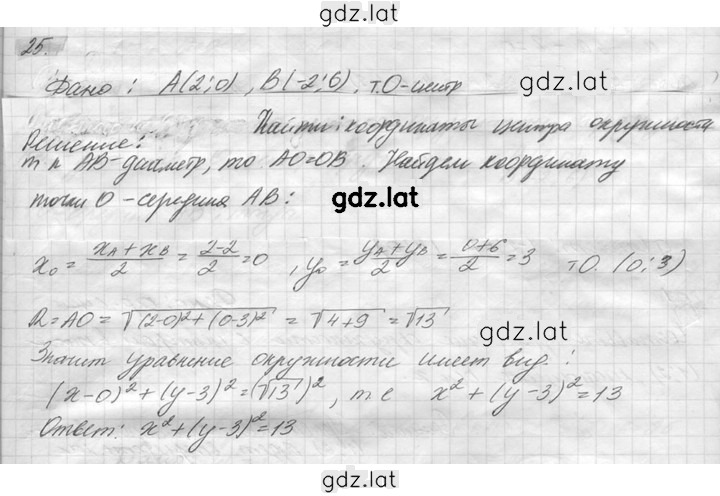 gdz.lat
25.
gdz.lat
Дано: A(2;0), B(-2;6), т.О-центр
Найти: координаты центра окружности
Решение:
т к AB-диаметр, то AO=OB. Найдем координату
точки O - середина AB:
gdz.lat
x₀ = (xA + xB)/2 = (2-2)/2 = 0, y₀ = (yA + yB)/2 = (0+6)/2 = 3 т O. (0;3)
R = AO = √((2-0)² + (0-3)²) = √(4+9) = √13
gdz.lat
Значит уравнение окружности имеет вид:
(x-0)² + (y-3)² = (√13)², т е x² + (y-3)² = 13
Ответ: x² + (y-3)² = 13
gdz.lat